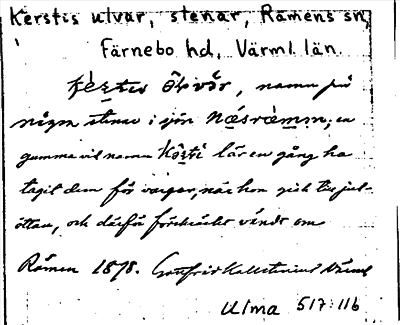 Kerstis ulvar, stenar, Rämens sn,
Färnebo hd, Värml. län.
namn på
några stenar i sjön Näsrämm; en
gumma vid namn Kästi lär en gång ha
tagit dem för vargar, när hon gick till jul-
ottan, och därför förskräckt vändt om
Rämen 1878. Gottfrid Kallstenius Värml
Ulma 517:116